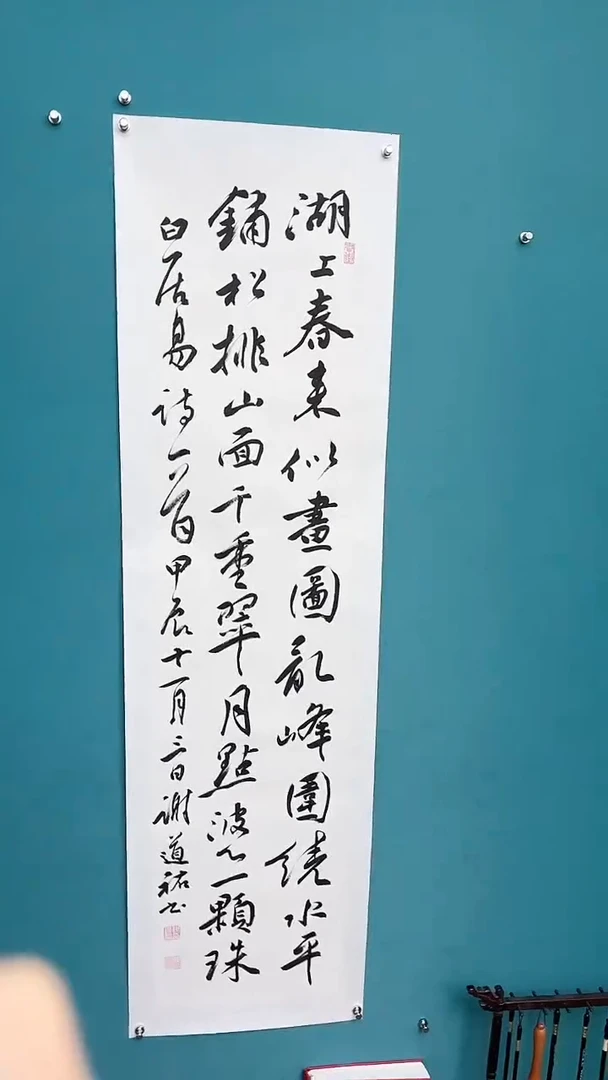 湖上春来似畫圖亂峰圍繞水平
鋪松排山面千重翠月點波心一顆珠
白居易詩一首甲辰十一月三日謝道祐书